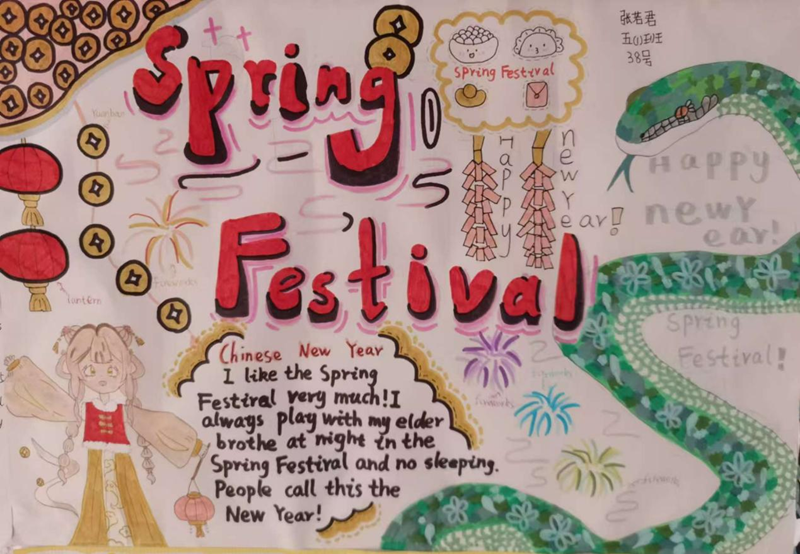 Spring
Festival
Spring Festival
张若君
五(1)班
38号
Happy
new year!
Happy
newY
ear!
Spring
Festival!
fireworks
lantern
fireworks
Chinese New Year
I like the Spring
Festival very much! I
always play with my elder
brothe at night in the
Spring Festival and no sleeping.
People call this the
New Year!